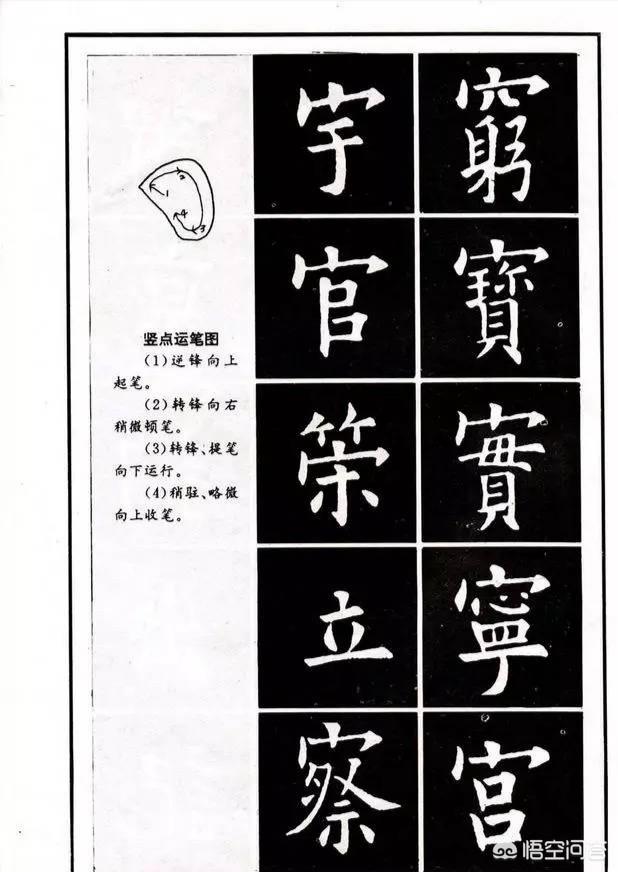 2
1
4
3
竖点运笔图
(1)逆锋向上
起笔。
(2)转锋向右
稍微顿笔。
(3)转锋、提笔
向下运行。
(4)稍驻、略微
向上收笔。
宇 窮
官 寶
策 實
立 寧
察 宫
悟空问答